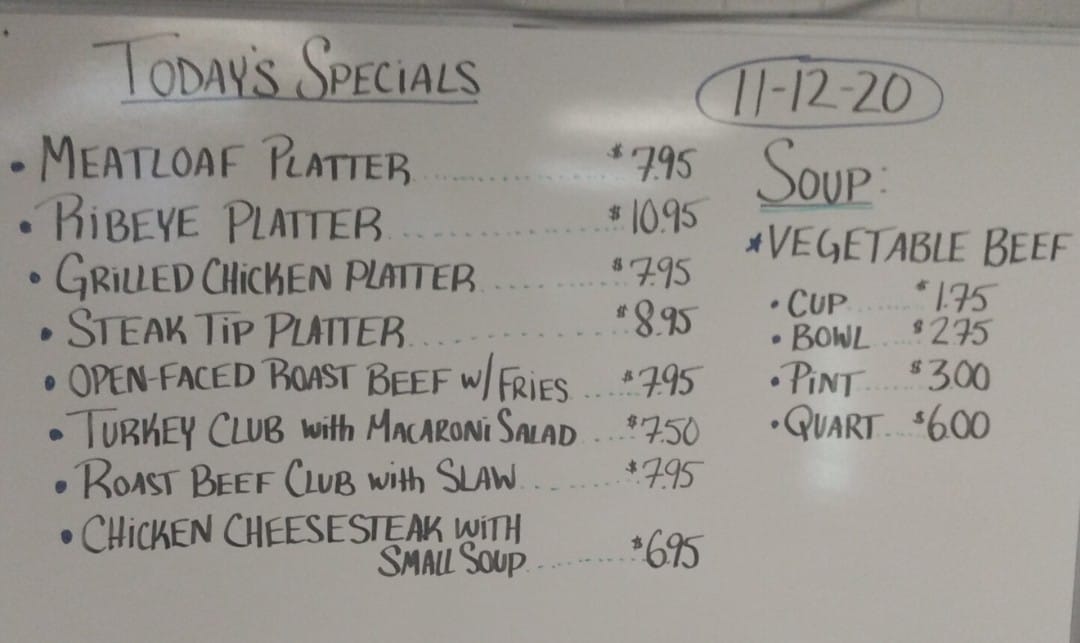 TODAY'S SPECIALS
11-12-20
• MEATLOAF PLATTER ........... $7.95
• RIBEYE PLATTER ........... $10.95
• GRILLED CHICKEN PLATTER ........... $7.95
• STEAK TIP PLATTER ........... $8.95
• OPEN-FACED ROAST BEEF W/ FRIES ..... $7.95
• TURKEY CLUB with MACARONI SALAD .... $7.50
• ROAST BEEF CLUB with SLAW ........ $7.95
• CHICKEN CHEESESTEAK WITH
SMALL SOUP ........ $6.95
SOUP:
*VEGETABLE BEEF
• CUP ...... $1.75
• BOWL .... $2.75
• PINT .... $3.00
• QUART ... $6.00